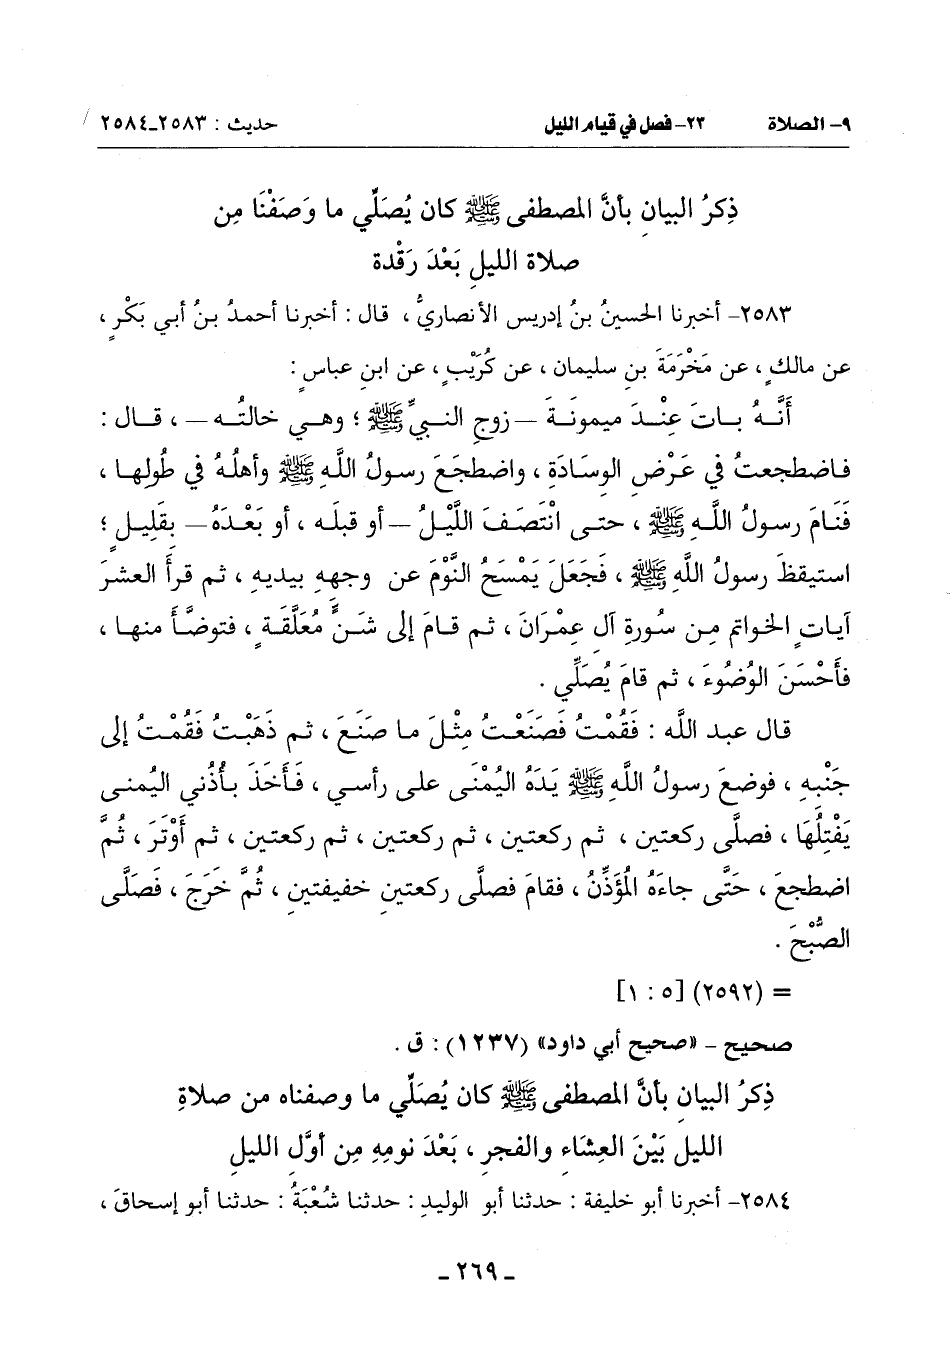 ٩- الصلاة ٢٣- فصل في قيام الليل حديث : ٢٥٨٣-٢٥٨٤
ذِكرُ البيانِ بأنَّ المصطفى ﷺ كان يُصَلِّي ما وَصَفْنَا مِن
صلاة الليلِ بَعْدَ رَقْدة
٢٥٨٣- أخبرنا الحسينُ بنُ إدريس الأنصاريُّ ، قال : أخبرنا أحمدُ بنُ أبي بَكْرٍ ،
عن مالكٍ ، عن مَخْرَمَةَ بنِ سليمان ، عن كُرَيْبٍ ، عن ابنِ عباسٍ :
أَنَّهُ بـاتَ عِنْـدَ ميمونـةَ – زوجِ النـبيِّ ﷺ ؛ وهـي خالتُـه – ، قـال :
فـاضطجعتُ في عَـرْضِ الوِسَـادَةِ ، واضطجَـعَ رسـولُ اللَّـهِ ﷺ وأهلُـهُ في طُولِهـا ،
فَنَـامَ رسـولُ اللَّـهِ ﷺ ، حتـى انْتَصَـفَ اللَّيْـلُ – أو قبلَـه ، أو بَعْـدَهُ – بقَلِيـلٍ ؛
استيقظَ رسولُ اللَّهِ ﷺ ، فَجَعَلَ يَمْسَحُ النَّوْمَ عن وجهِهِ بيديهِ ، ثم قرأَ العشرَ
آيـاتٍ الخواتم مِـن سُـورةِ آلِ عِمْـرَانَ ، ثـم قـامَ إلى شَـنٍّ مُعَلَّقَـةٍ ، فتوضَّـأَ منهـا ،
فأَحْسَنَ الوُضُوءَ ، ثم قامَ يُصَلِّي .
قال عبد اللَّه : فَقُمْتُ فَصَنَعْـتُ مِثْـلَ مـا صَنَـعَ ، ثـم ذَهَبْـتُ فَقُمْـتُ إلى
جَنْبِهِ ، فوضعَ رسولُ اللَّهِ ﷺ يَدَهُ اليُمْنَى على رأسي ، فَـأَخَذَ بـأُذُني اليُمنـى
يَفْتِلُهَا ، فصلَّى ركعتين ، ثم ركعتين ، ثم ركعتين ، ثم ركعتين ، ثم أَوْتَرَ ، ثُمَّ
اضطجعَ ، حَتَّى جاءَهُ المُؤَذِّنُ ، فقامَ فصلَّى ركعتينِ خفيفتينِ ، ثُمَّ خَرَجَ ، فَصَلَّى
الصُّبْحَ .
= (٢٥٩٢) [٥ : ١]
صحيح – «صحيح أبي داود» (١٢٣٧) : ق .
ذِكرُ البيانِ بأنَّ المصطفى ﷺ كان يُصَلِّي ما وصفناه من صلاةِ
الليلِ بَيْنَ العِشَاءِ والفجرِ ، بَعْدَ نومِهِ مِن أوَّل الليلِ
٢٥٨٤- أخبرنا أبو خليفة : حدثنا أبو الوليدِ : حدثنا شُعْبَةُ : حدثنا أبو إسحاقَ ،
- ٢٦٩ -